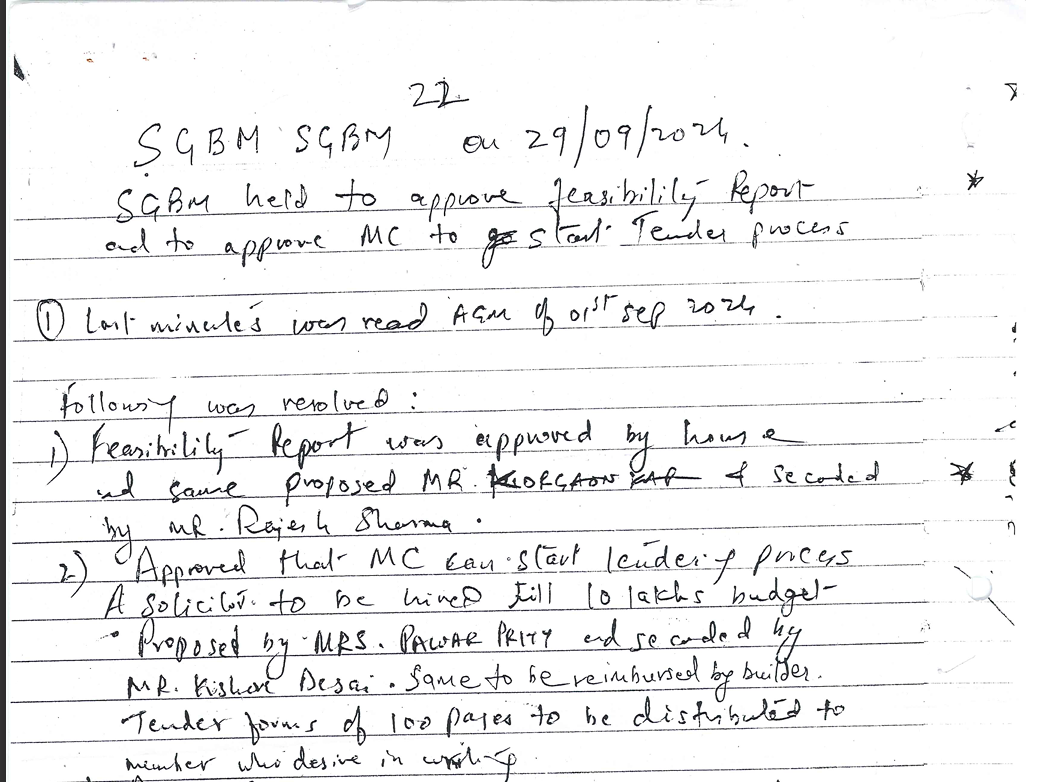 22
SGBM SGBM on 29/09/2024.
SGBM held to approve feasibility Report
and to approve MC to go start Tender process
① Last minutes was read AGM of 01st Sep 2024.
Following was resolved :
1) Feasibility Report was approved by house
and same proposed MR. KORGAONKAR & seconded
by MR. Rajesh Sharma.
2) Approved that MC can start tendering process
A solicitor to be hired till 10 lakhs budget
• Proposed by MRS. PAWAR PRITY and seconded by
MR. Kishore Desai. Same to be reimbursed by builder.
Tender forms of 100 pages to be distributed to
member who desire in writing